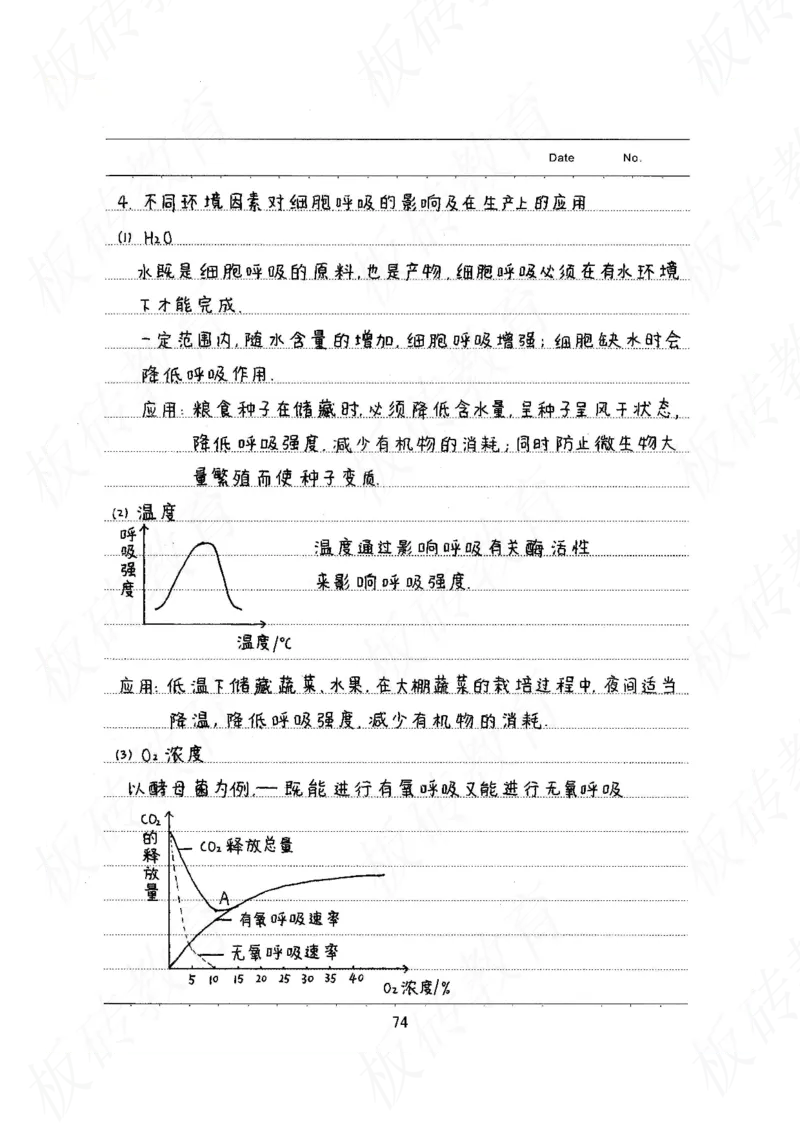 Date No.
4. 不同环境因素对细胞呼吸的影响及在生产上的应用
(1) H₂O
水既是细胞呼吸的原料,也是产物,细胞呼吸必须在有水环境
下才能完成.
一定范围内,随水含量的增加,细胞呼吸增强;细胞缺水时会
降低呼吸作用.
应用:粮食种子在储藏时,必须降低含水量,呈种子呈风干状态,
降低呼吸强度,减少有机物的消耗;同时防止微生物大
量繁殖而使种子变质.
(2) 温度
呼吸强度
温度通过影响呼吸有关酶活性
来影响呼吸强度.
温度/℃
应用:低温下储藏蔬菜、水果,在大棚蔬菜的栽培过程中,夜间适当
降温,降低呼吸强度,减少有机物的消耗.
(3) O₂浓度
以酵母菌为例,一既能进行有氧呼吸又能进行无氧呼吸
CO₂的释放量
CO₂释放总量
A
有氧呼吸速率
无氧呼吸速率
5 10 15 20 25 30 35 40
O₂浓度/%
74
板砖教育